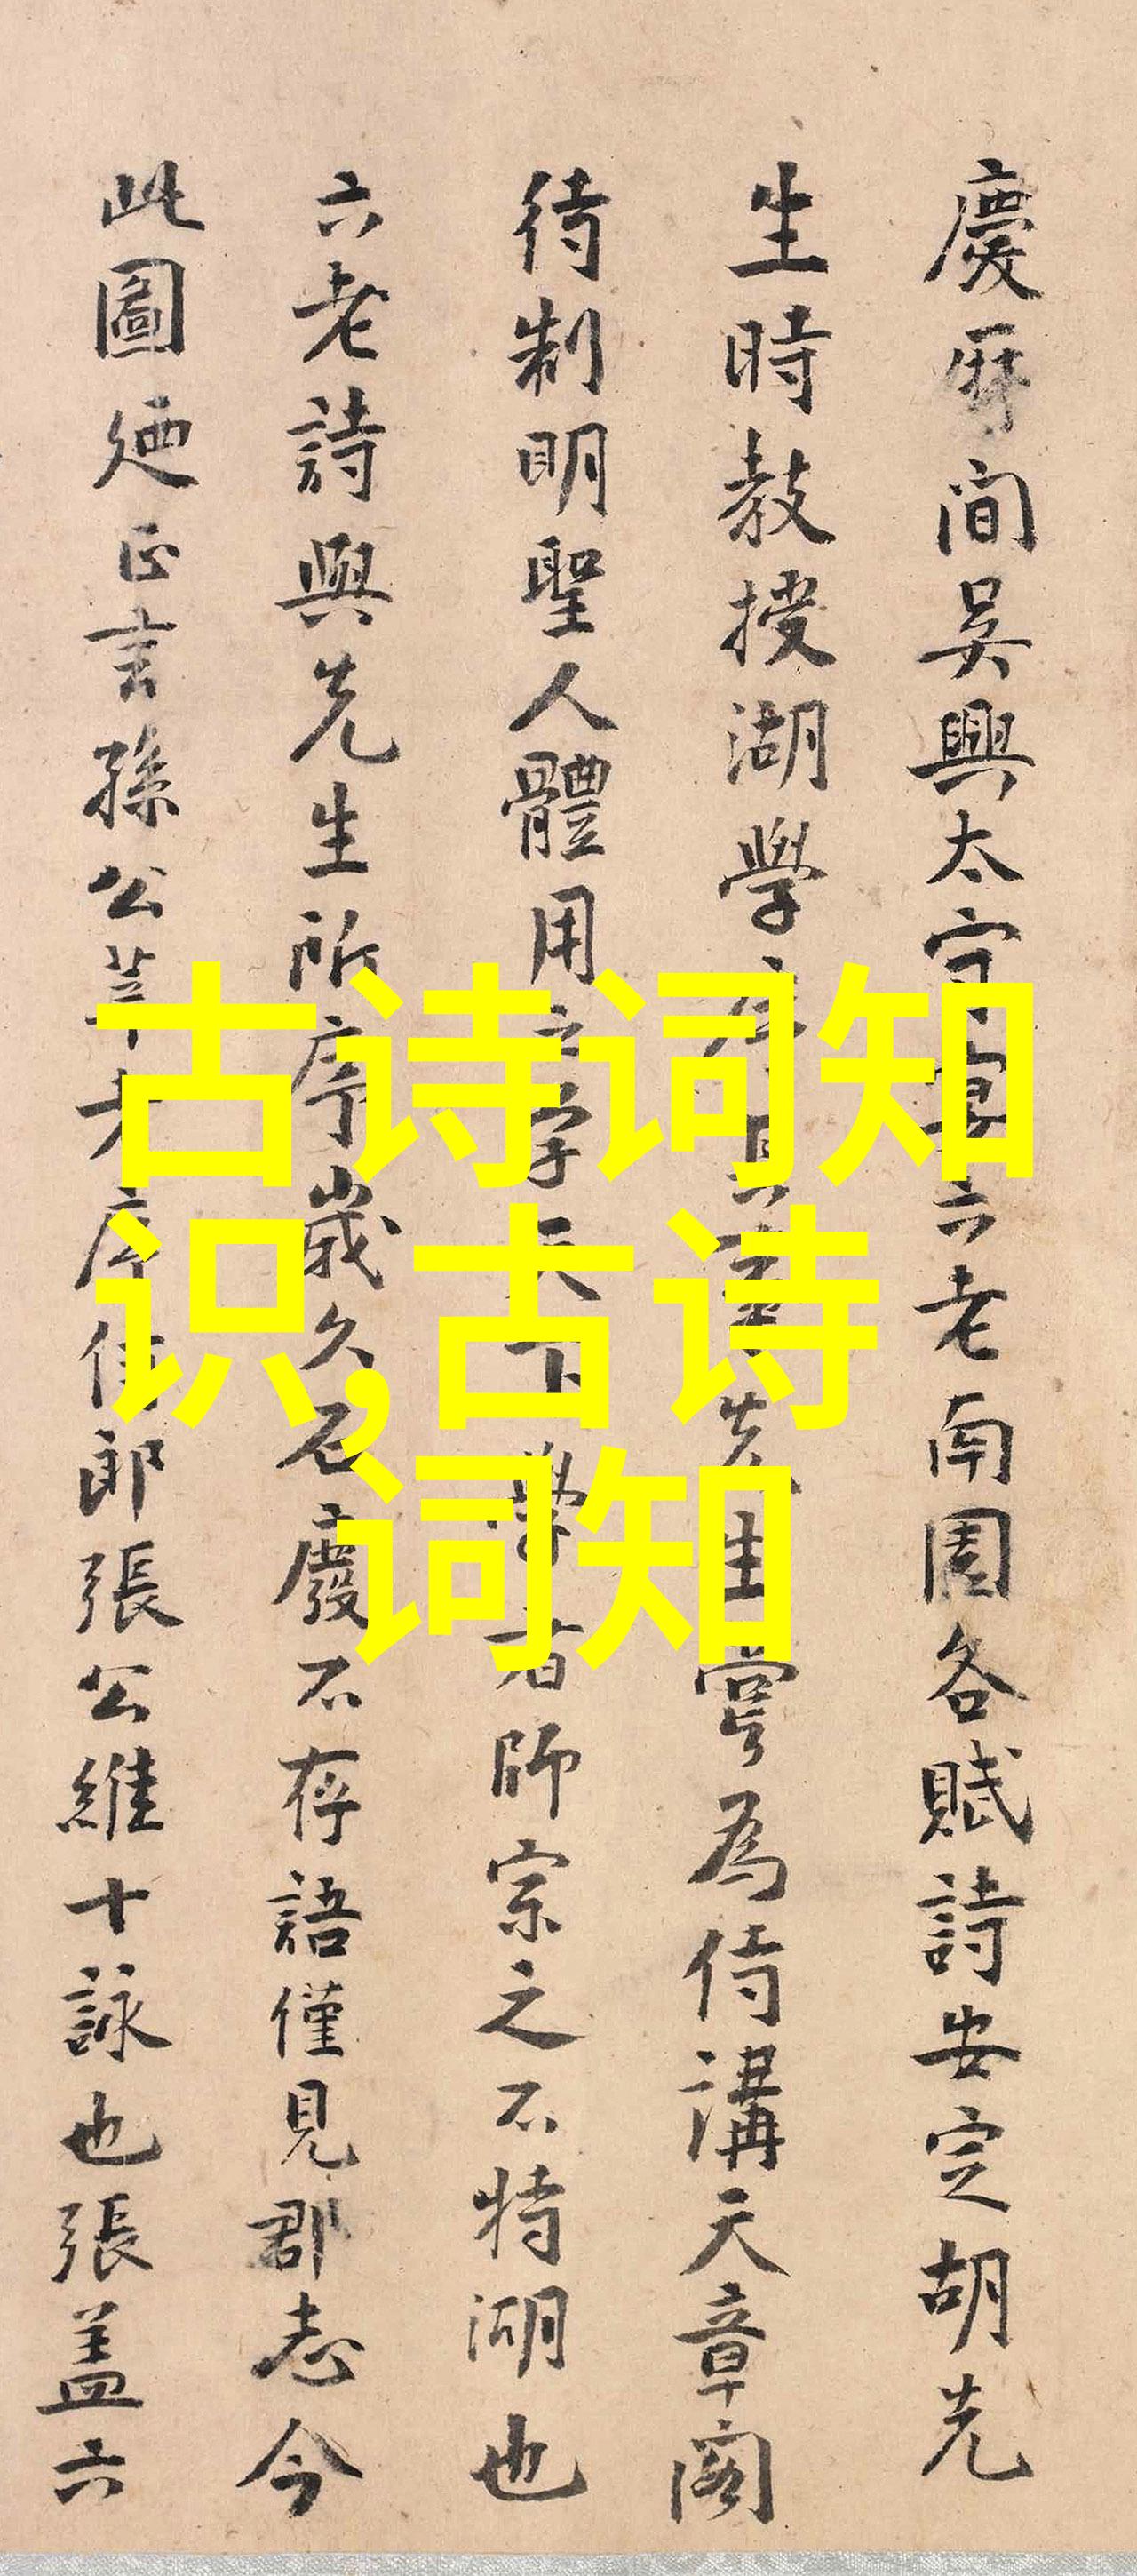 慶厤間吳興太守宴六老南園各賦詩安定胡先
生時教授湖學序其事先生嘗為侍講天章閣
待制明聖人體用之學天下學者師宗之不特湖也
六老詩與先生所序歲久石廢不存語僅見郡志今
此圖廼正言孫公莘老序侍郎張公維十詠也張蓋六
古诗词知
识,古诗
词知